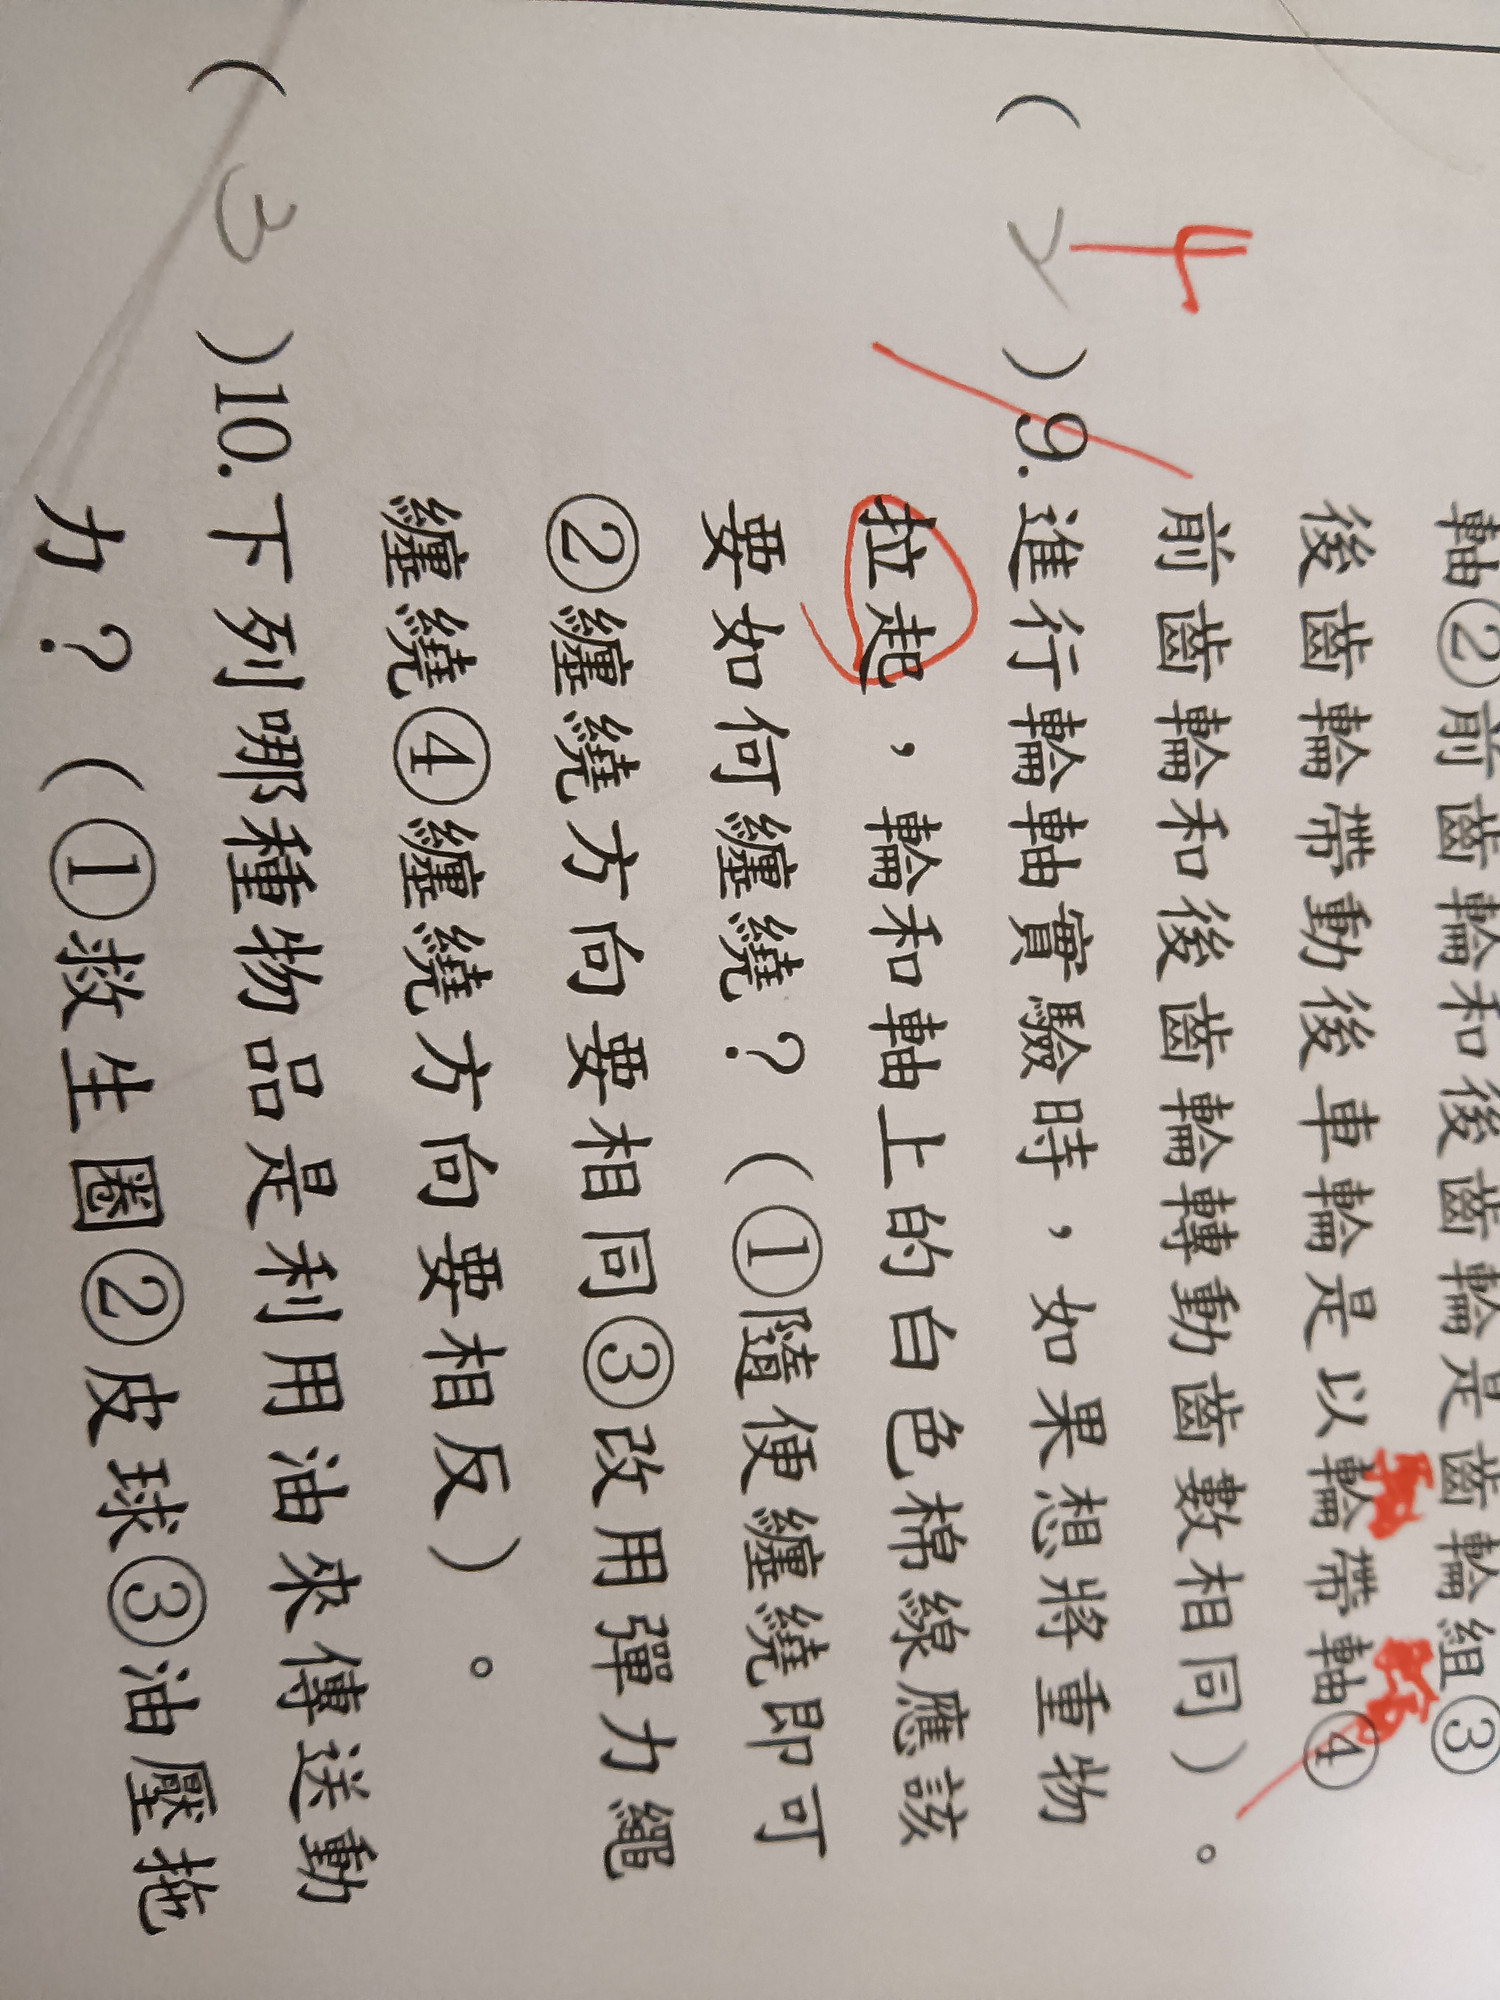 軸②前齒輪和後齒輪是齒輪組③
後齒輪帶動後車輪是以輪帶軸④
前齒輪和後齒輪轉動齒數相同）。
4
（2）9.進行輪軸實驗時，如果想將重物
拉起，輪和軸上的白色棉線應該
要如何纏繞？（①隨便纏繞即可
②纏繞方向要相同③改用彈力繩
纏繞④纏繞方向要相反）。
（3）10.下列哪種物品是利用油來傳送動
力？（①救生圈②皮球③油壓拖